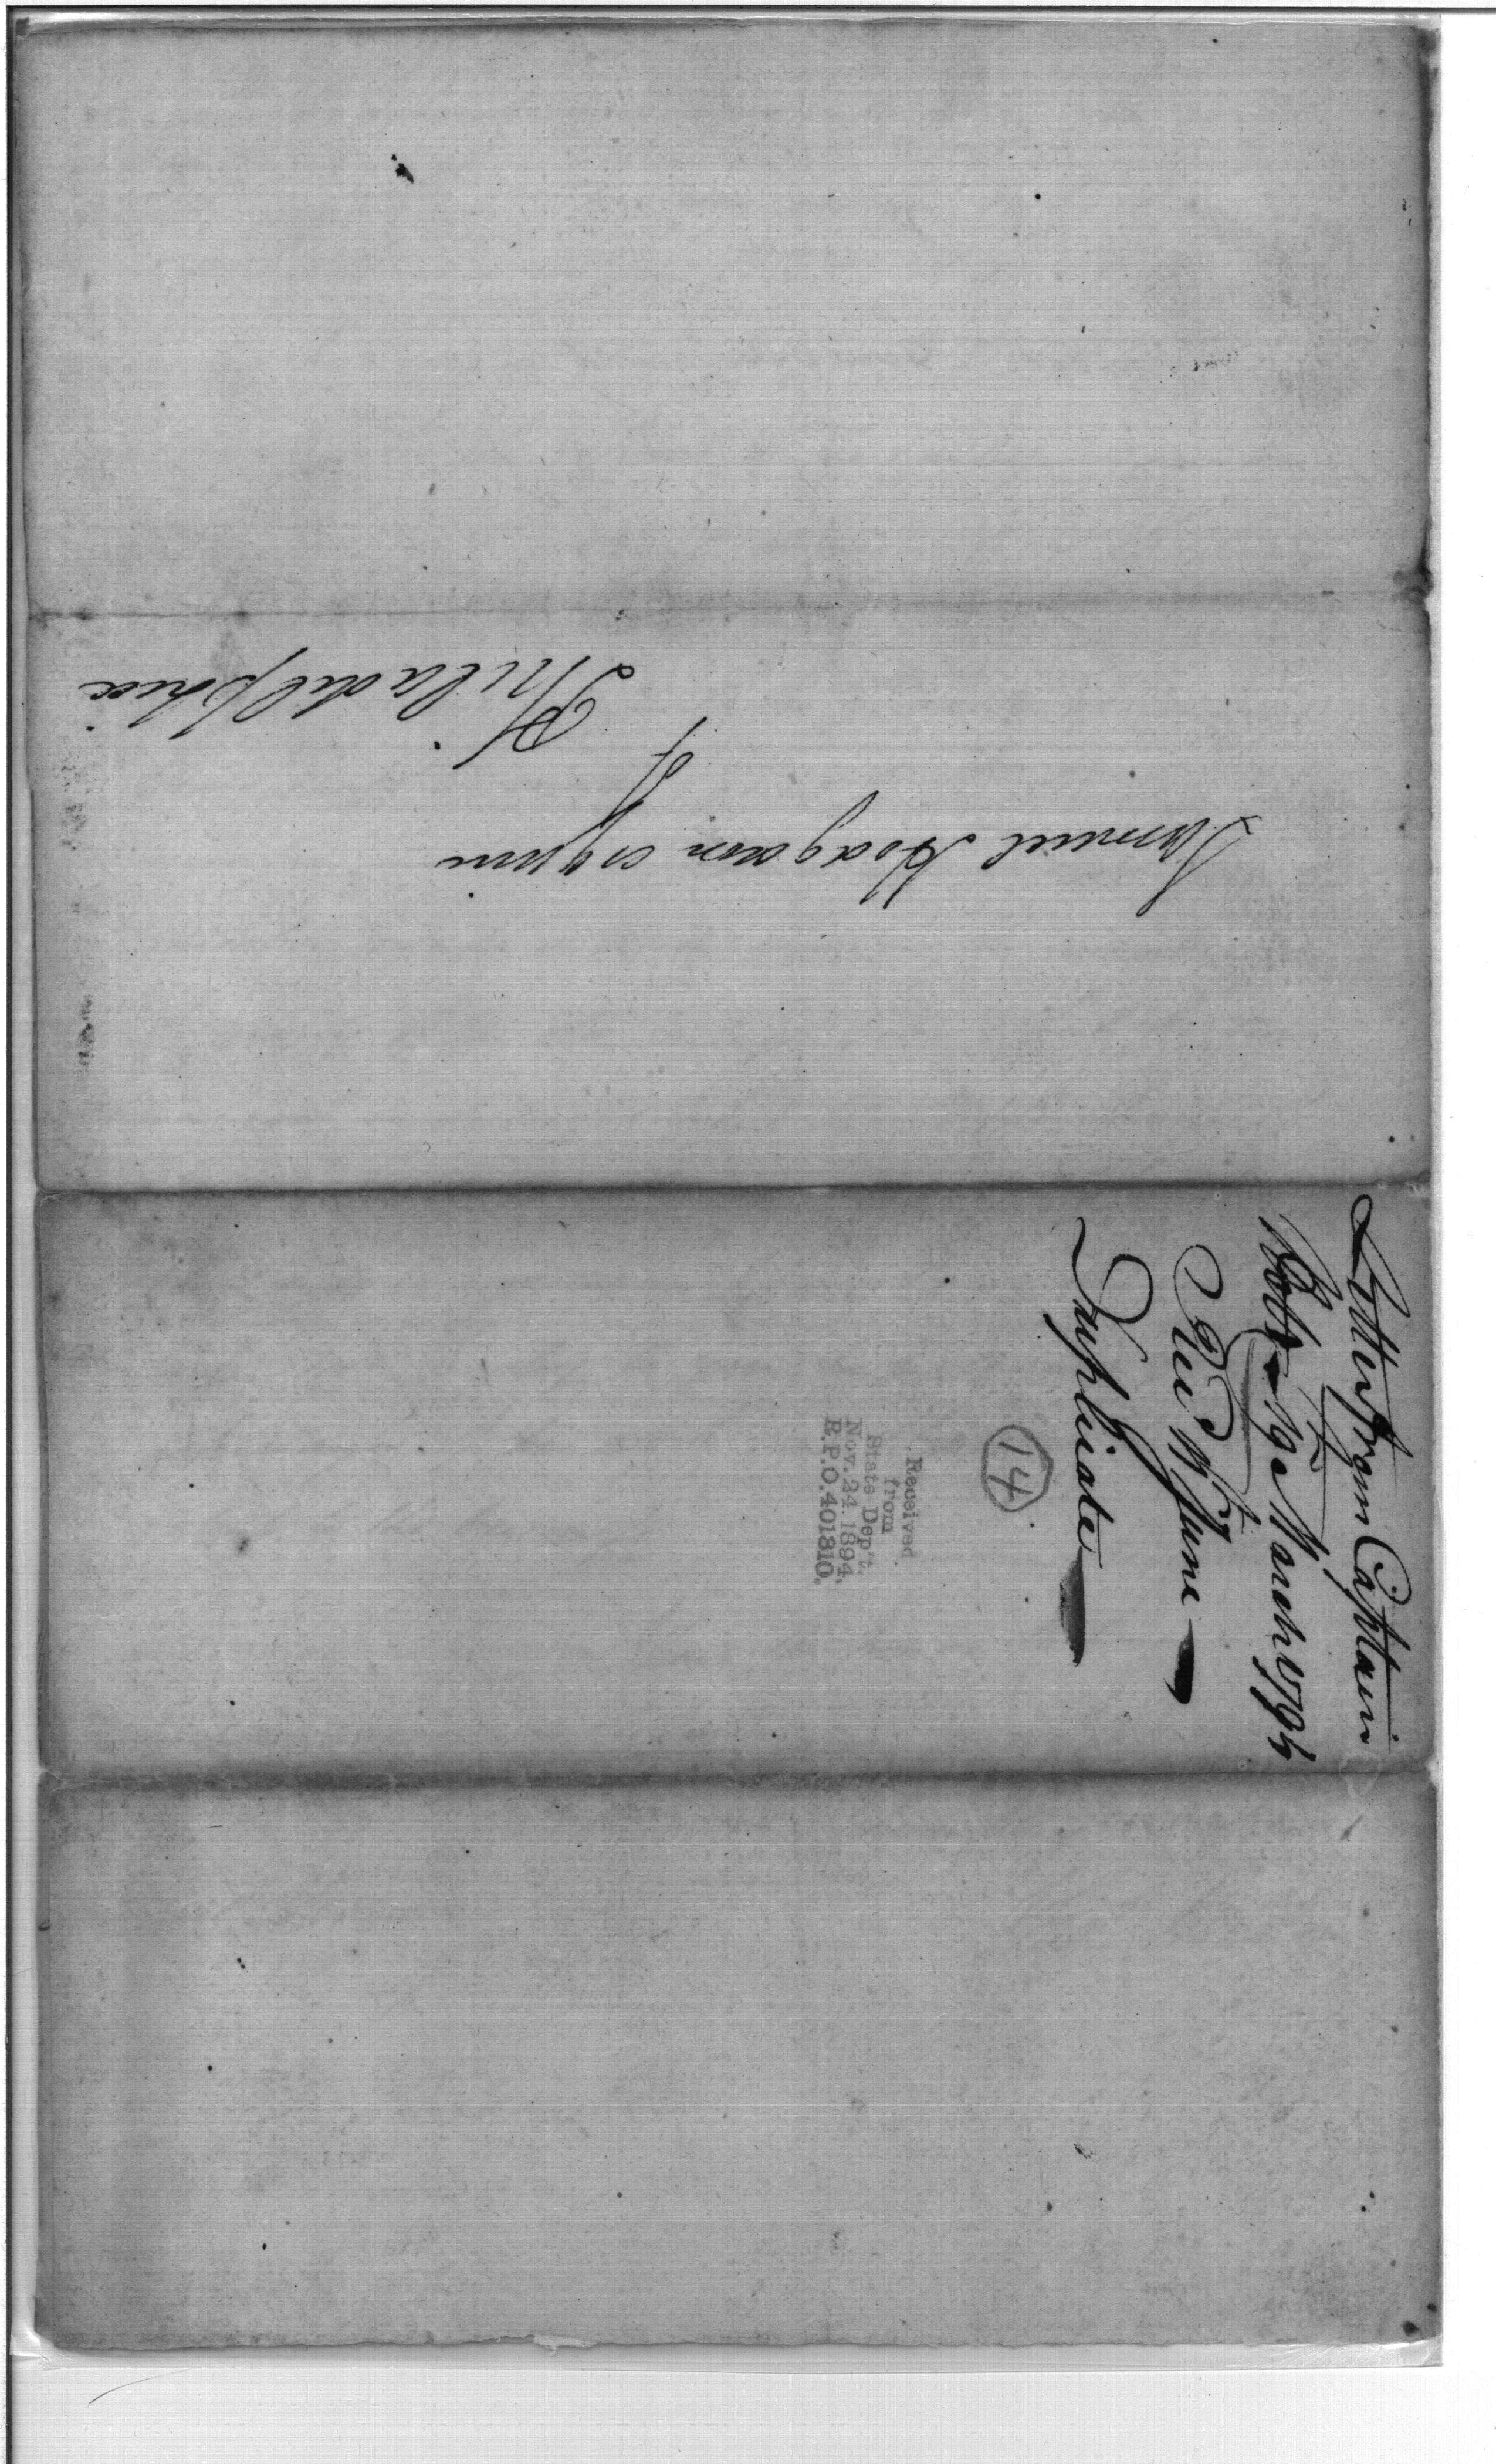 Samuel Hodgdon esquire
Philadelphia
Letter from Captain
March 1794
Rec'd 11th June
Duplicate
14
Received
from
State Dep't.
Nov. 24. 1894.
R.P.O. 401810.